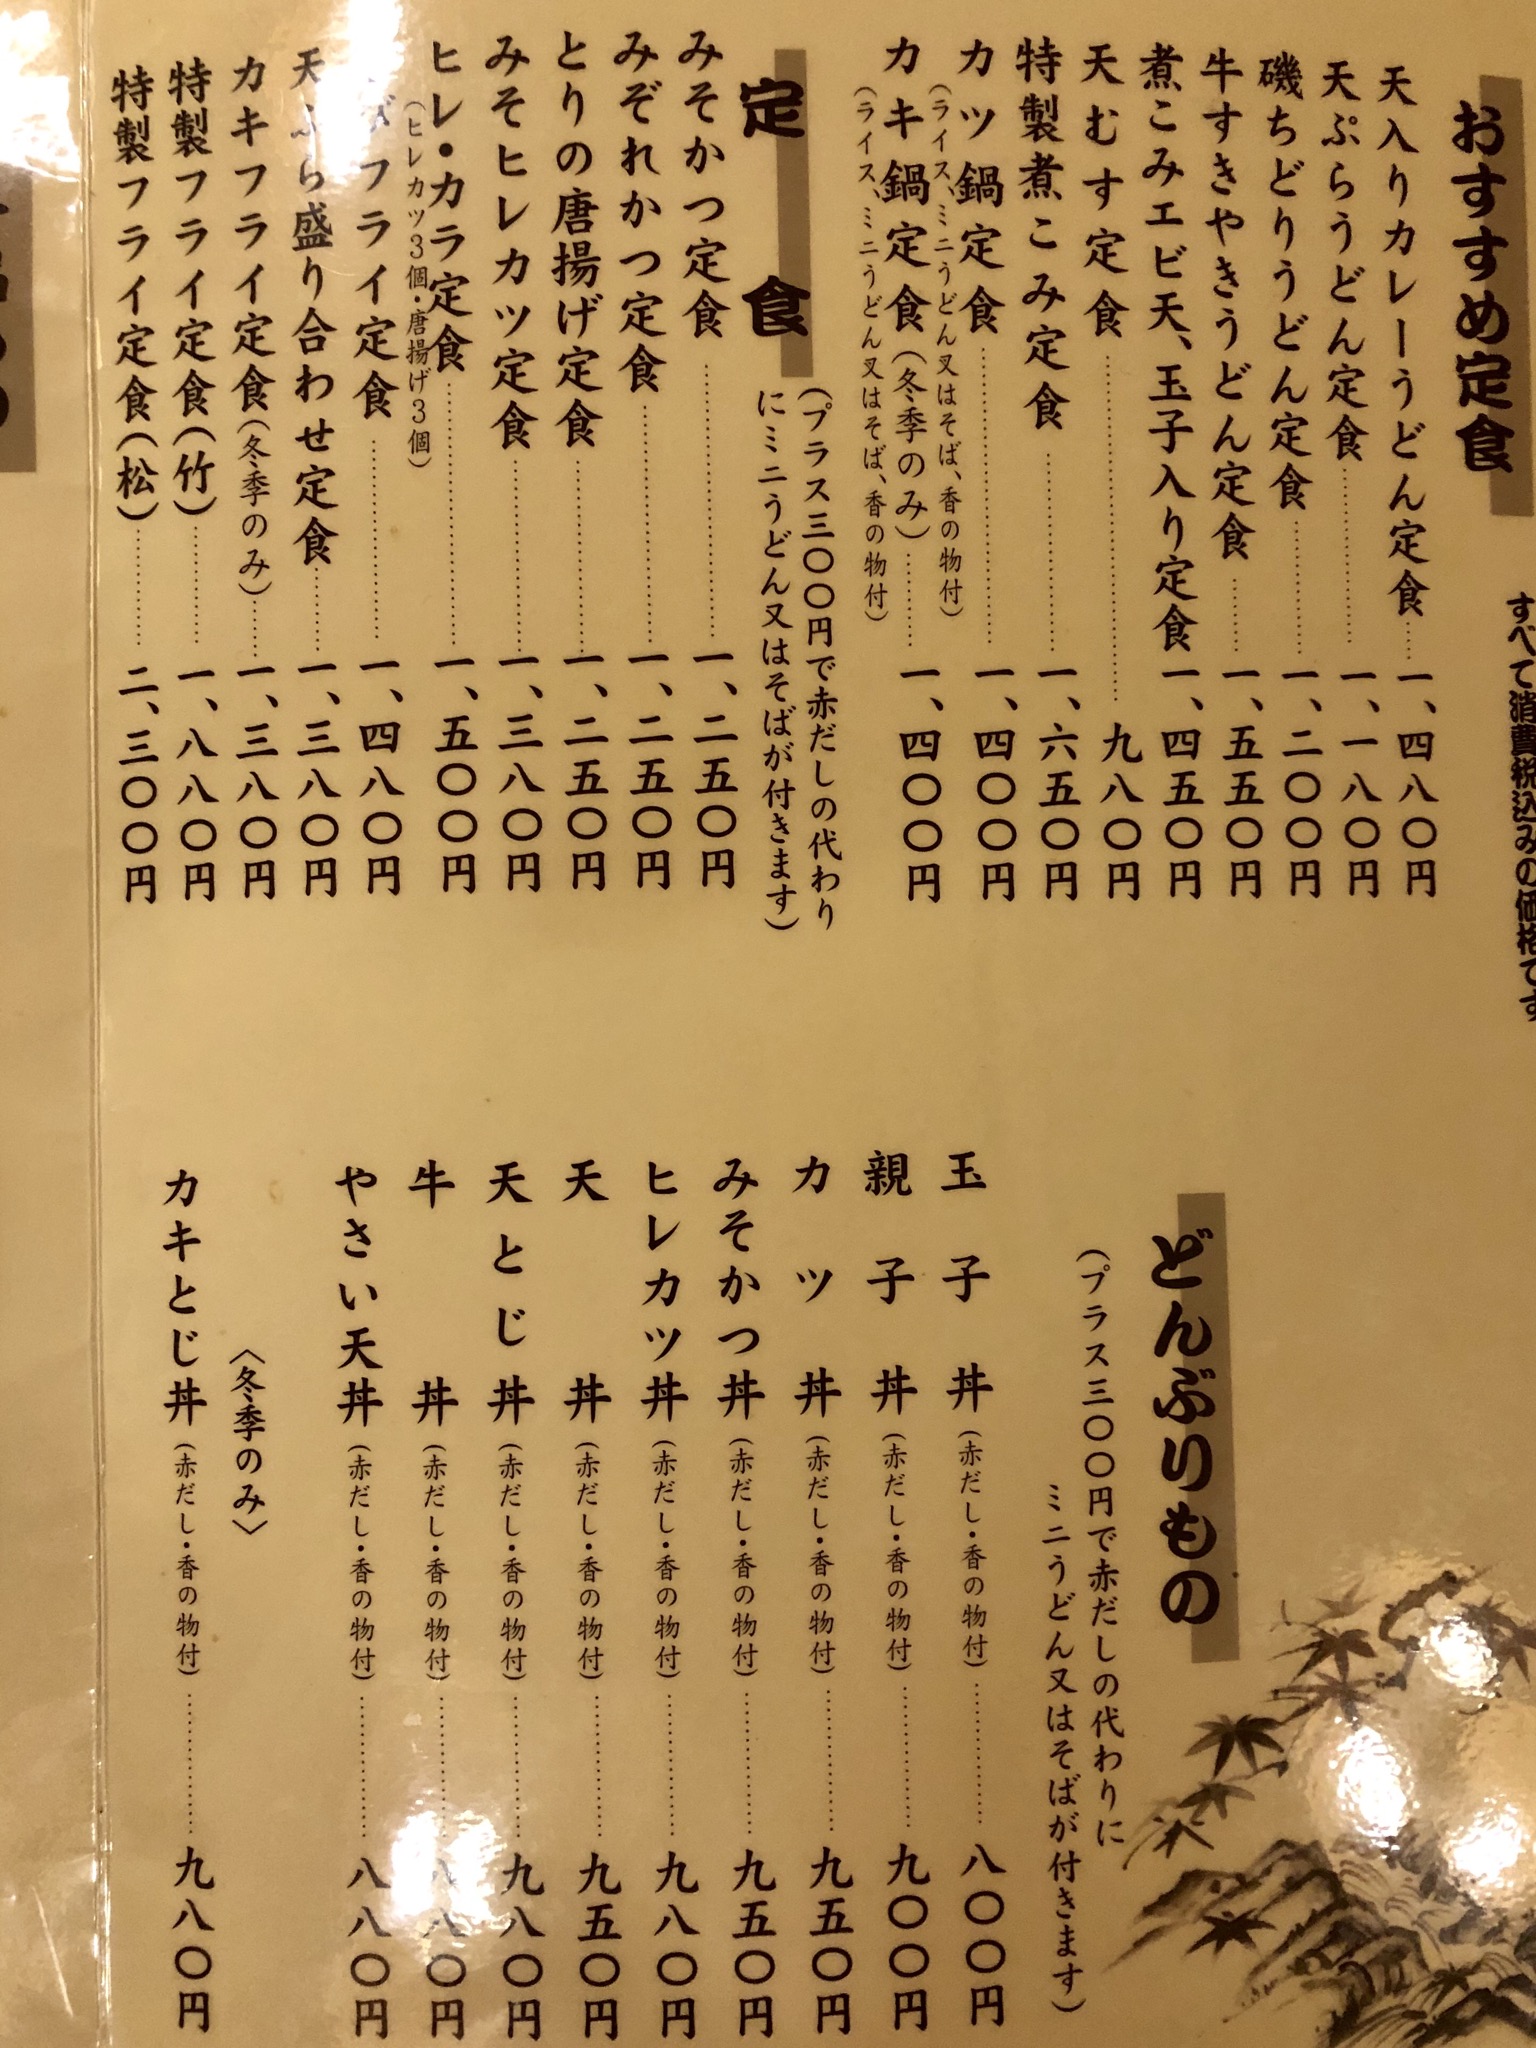 すべて消費税込みの価格です
おすすめ定食
天入りカレーうどん定食……一、四八〇円
天ぷらうどん定食……一、一八〇円
磯ちどりうどん定食……一、二〇〇円
牛すきやきうどん定食……一、五五〇円
煮こみエビ天、玉子入り定食 一、四五〇円
天むす定食……九八〇円
特製煮こみ定食……一、六五〇円
カツ鍋定食……一、四〇〇円
(ライス、ミニうどん又はそば、香の物付)
カキ鍋定食(冬季のみ)……一、四〇〇円
(ライス、ミニうどん又はそば、香の物付)
定食
(プラス三〇〇円で赤だしの代わり
にミニうどん又はそばが付きます)
みそかつ定食……一、二五〇円
みぞれかつ定食……一、二五〇円
とりの唐揚げ定食……一、二五〇円
みそヒレカツ定食……一、三八〇円
ヒレ・カラ定食……一、五〇〇円
(ヒレカツ3個・唐揚げ3個)
フライ定食……一、四八〇円
天ぷら盛り合わせ定食……一、三八〇円
カキフライ定食(冬季のみ)……一、三八〇円
特製フライ定食(竹)……一、八八〇円
特製フライ定食(松)……二、三〇〇円
どんぶりもの
(プラス三〇〇円で赤だしの代わりに
ミニうどん又はそばが付きます)
玉子丼(赤だし・香の物付)……八〇〇円
親子丼(赤だし・香の物付)……九〇〇円
カツ丼(赤だし・香の物付)……九五〇円
みそかつ丼(赤だし・香の物付)……九五〇円
ヒレカツ丼(赤だし・香の物付)……九八〇円
天丼(赤だし・香の物付)……九五〇円
天とじ丼(赤だし・香の物付)……九八〇円
牛丼(赤だし・香の物付)……八〇円
やさい天丼(赤だし・香の物付)……八八〇円
〈冬季のみ〉
カキとじ丼(赤だし・香の物付)……九八〇円